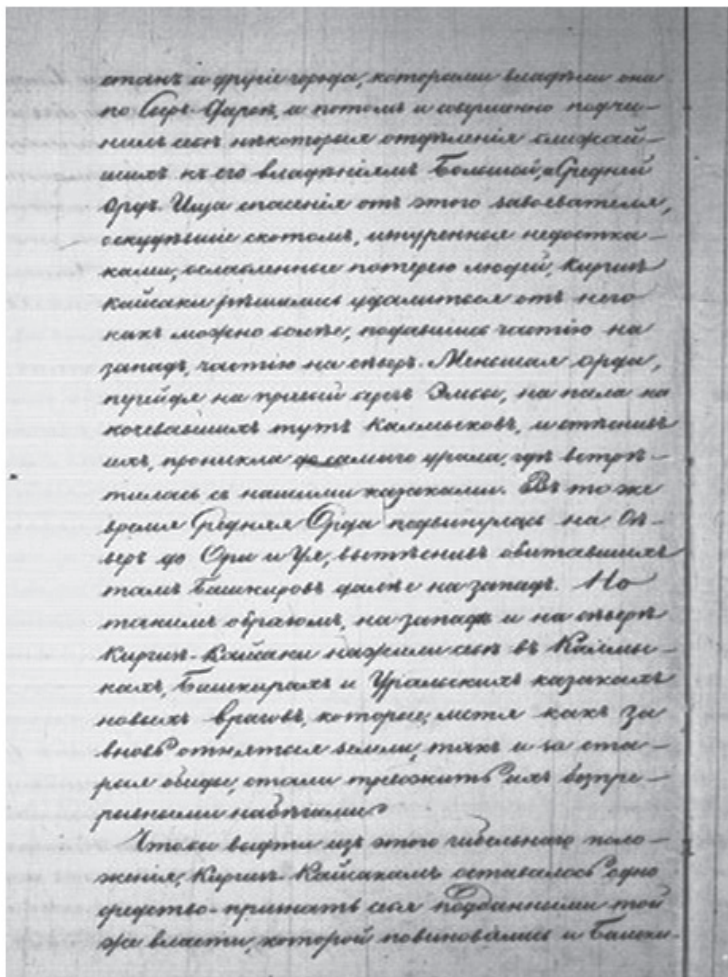 станъ и другіе города, которыми владѣли они
по Сыръ Дарьѣ, а потомъ и совершенно подчи-
нилъ себѣ нѣкоторыя отдѣленія ближай-
шихъ къ его владѣніямъ Большой, и Средней
Ордъ. Ища спасенія отъ этого завоевателя,
оскудѣвшіе скотомъ, изнуренные недостат-
ками, ослабленные потерею людей, Киргизъ
Кайсаки рѣшились удалиться отъ него
какъ можно болѣе, подавшись частію на
западъ, частію на сѣверъ. Меньшая орда,
перейдя на правый берегъ Эмбы, напала на
кочевавшихъ тутъ Калмыковъ, и стѣснивъ
ихъ, проникла до самаго урала, гдѣ встрѣ-
тилась съ нашими казаками. Въ то же
время Средняя Орда подвинулась на сѣ-
веръ до Ори и Уя, вытѣснивъ обитавшихъ
тамъ Башкировъ далѣе на западъ. По
такимъ образомъ, на западѣ и на сѣверѣ
Киргизъ-Кайсаки нажили себѣ въ Калмы-
кахъ, Башкирахъ и Уральскихъ казакахъ
новыхъ враговъ, которые, мстя какъ за
вновь отнятыя земли, такъ и за ста-
рыя обиды, стали тревожить ихъ безпре-
рывными набѣгами.
Чтобы выдти изъ этого гибельнаго поло-
женія, Киргизъ Кайсакамъ оставалось одно
средство признать себя подданными той
же власти, которой повиновались и Башки-